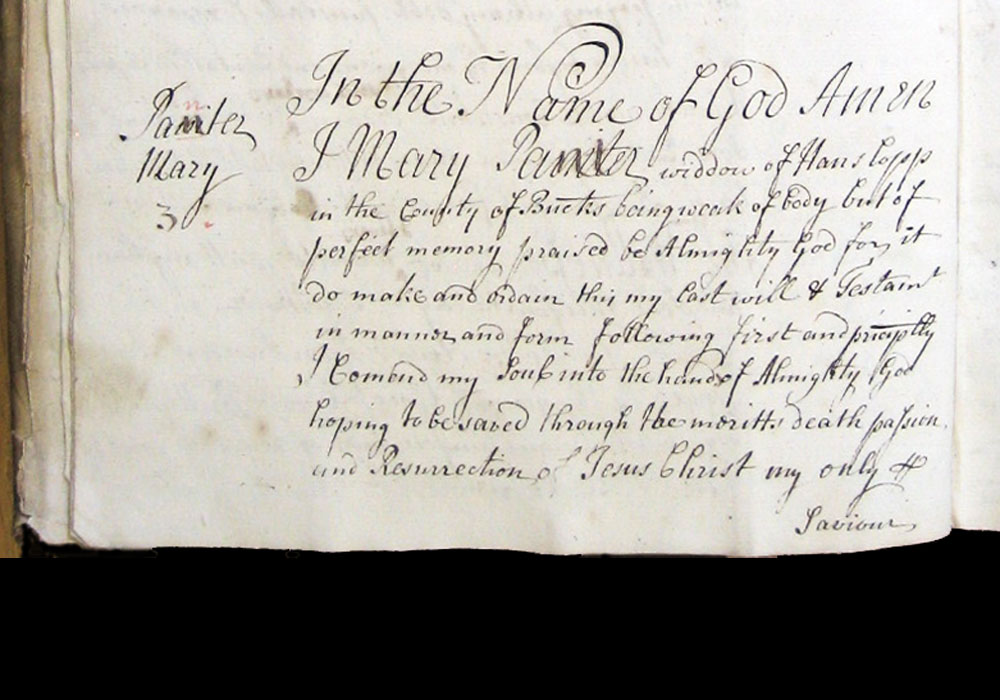 Painter
Mary
3
In the Name of God Amen
I Mary Painter widdow of Hanslopp
in the County of Bucks being weak of body but of
perfect memory praised be Almighty God for it
do make and ordain this my last will & Testamt
in manner and form following first and principlly
I Comend my Soul into the hands of Almighty God
hoping to be saved through the meritts death passion
and Resurrection of Jesus Christ my only
Saviour